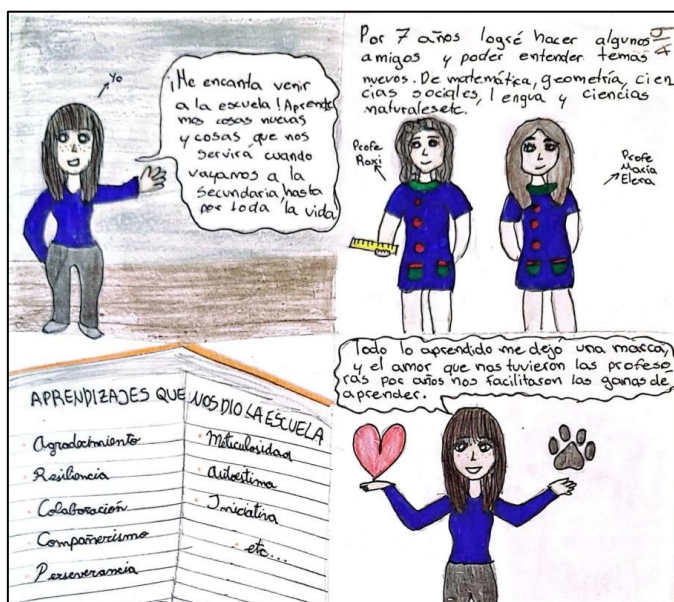 Yo
¡Me encanta venir
a la escuela! Aprende
mos cosas nuevas
y cosas que nos
servirá cuando
vayamos a la
secundaria, hasta
por toda la vida
Por 7 años logré hacer algunos
amigos y poder entender temas
nuevos. De matemática, geometría, cien
cias sociales, lengua y ciencias
naturales etc.
Profe
Roxi
Profe
María
Elena
APRENDIZAJES QUE NOS DIO LA ESCUELA
Agradecimiento
Resiliencia
Colaboración
Compañerismo
Perseverancia
Meticulosidad
Autoestima
Iniciativa
etc...
Todo lo aprendido me dejó una marca,
y el amor que nos tuvieron las profeso
ras por años nos facilitaron las ganas de
aprender.